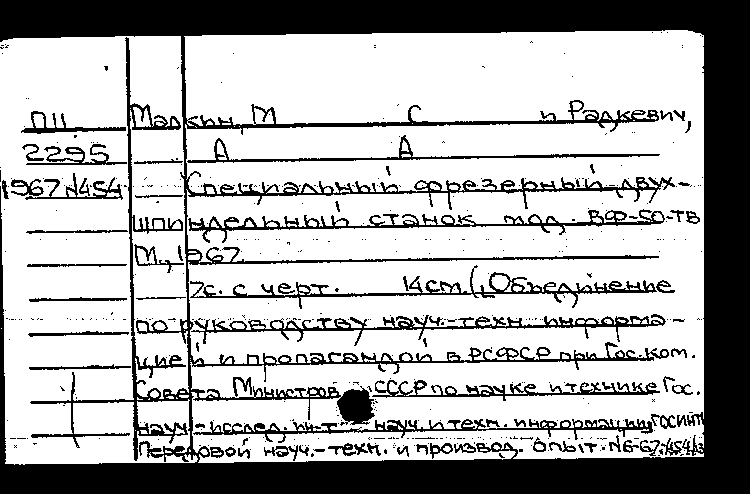 ПII Малкин, М С и Радкевич,
2295 А А
1967 N454 Специальный фрезерный двух-
шпиндельный станок мод. ВФ-50-ТВ
М., 1967
7с. с черт. 14см. (Объединение
по руководству науч.-техн. информа-
цией и пропагандой в РСФСР при Гос. ком.
Совета Министров СССР по науке и технике Гос.
науч.-исслед. ин-т науч. и техн. информации ГОСИНТИ
Передовой науч.-техн. и производ. опыт. N6-67-454/